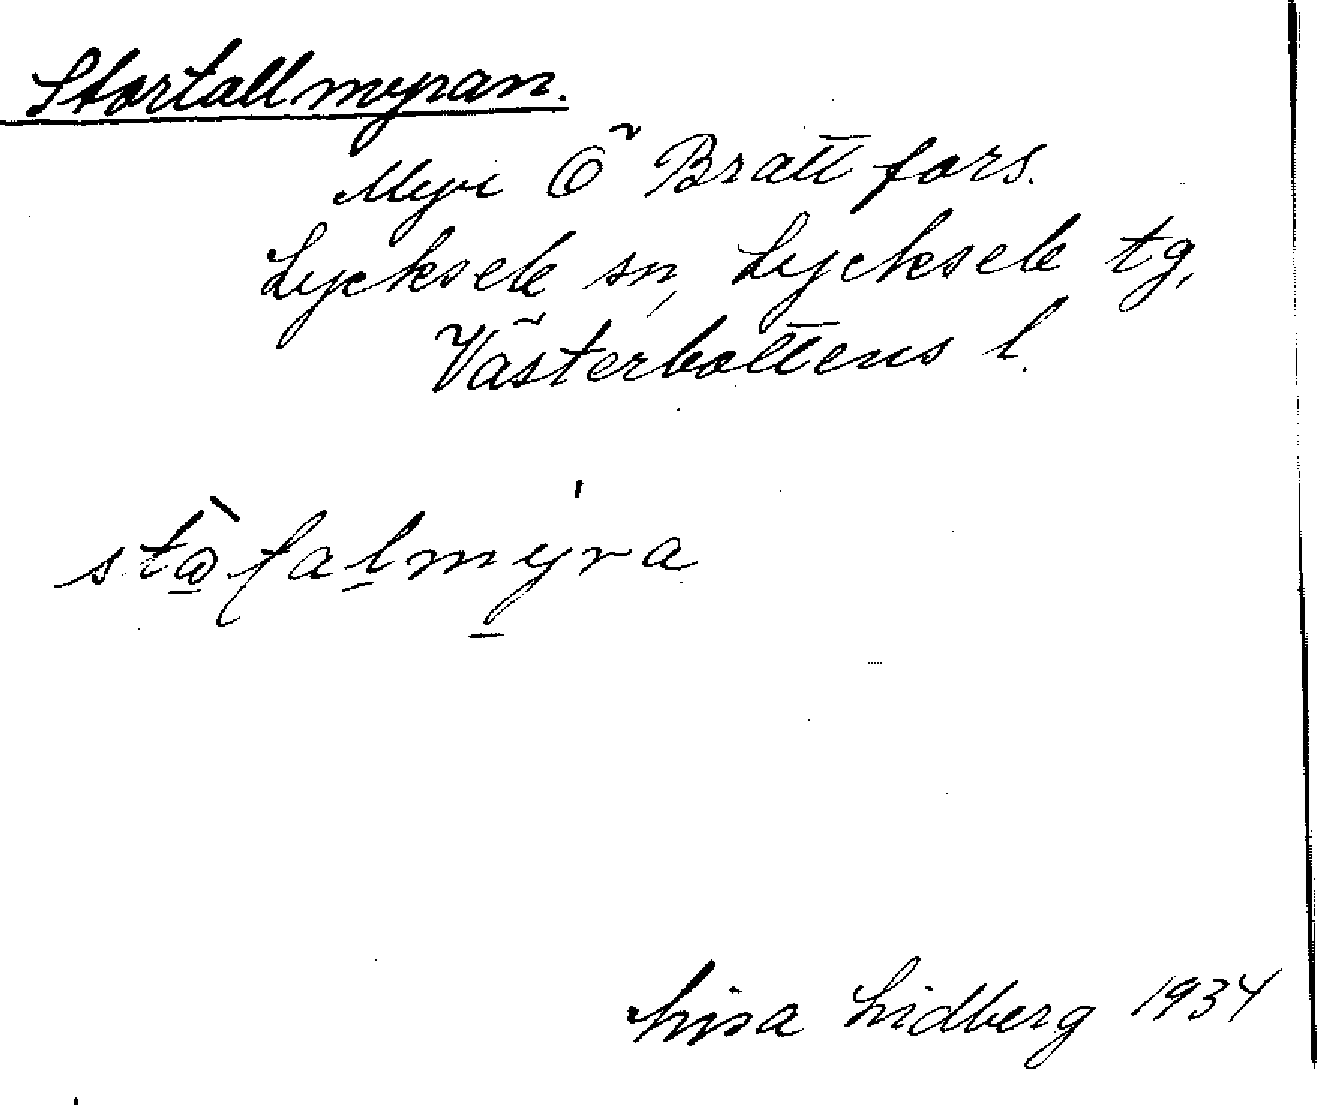 Stortallmyran.
Myr i Ö Brattfors.
Lycksele sn, Lycksele tg,
Västerbottens l.
Lisa Lidberg 1934